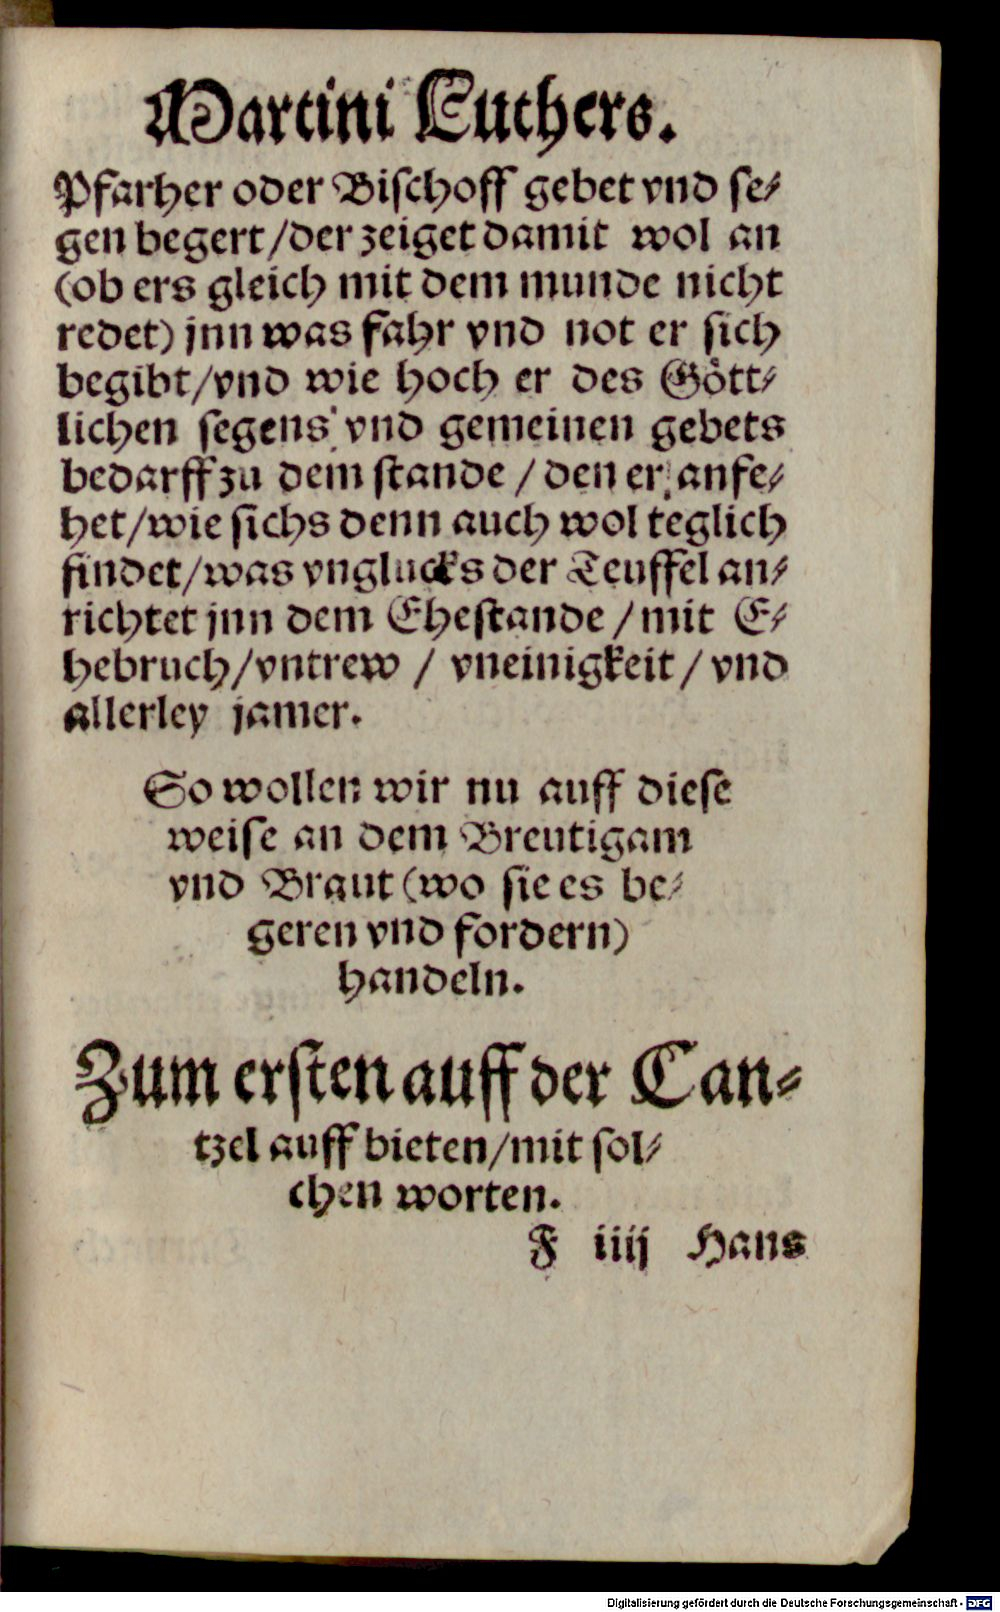 Martini Luthers.
Pfarher oder Bischoff gebet vnd se-
gen begert/der zeiget damit wol an
(ob ers gleich mit dem munde nicht
redet) jnn was fahr vnd not er sich
begibt/vnd wie hoch er des Gött-
lichen segens vnd gemeinen gebets
bedarff zu dem stande / den er anfe-
het/wie sichs denn auch wol teglich
findet/was vnglucks der Teuffel an-
richtet jnn dem Ehestande / mit E-
hebruch/vntrew / vneinigkeit / vnd
allerley jamer.
So wollen wir nu auff diese
weise an dem Breutigam
vnd Braut (wo sie es be-
geren vnd fordern)
handeln.
Zum ersten auff der Can-
tzel auff bieten/mit sol-
chen worten.
F iiij Hans
Digitalisierung gefördert durch die Deutsche Forschungsgemeinschaft - DFG